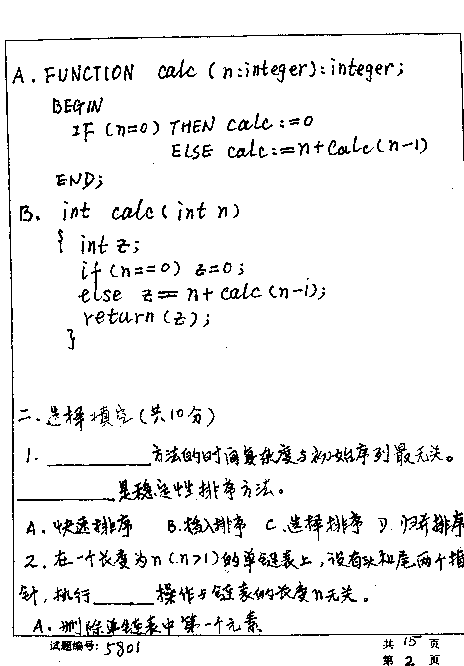 A. FUNCTION calc (n:integer):integer;
BEGIN
IF (n=0) THEN calc:=0
ELSE calc:=n+calc(n-1)
END;
B. int calc(int n)
{ int z;
if (n==0) z=0;
else z= n+calc(n-1);
return(z);
}
二、选择填空(共10分)
1. ________方法的时间复杂度与初始序列最无关。
________是稳定性排序方法。
A. 快速排序 B.插入排序 C.选择排序 D.归并排序
2. 在一个长度为n(n>1)的单链表上,设有头和尾两个指
针,执行______操作与链表的长度n无关。
A. 删除单链表中第一个元素
试题编号:5801 共 15 页
第 2 页